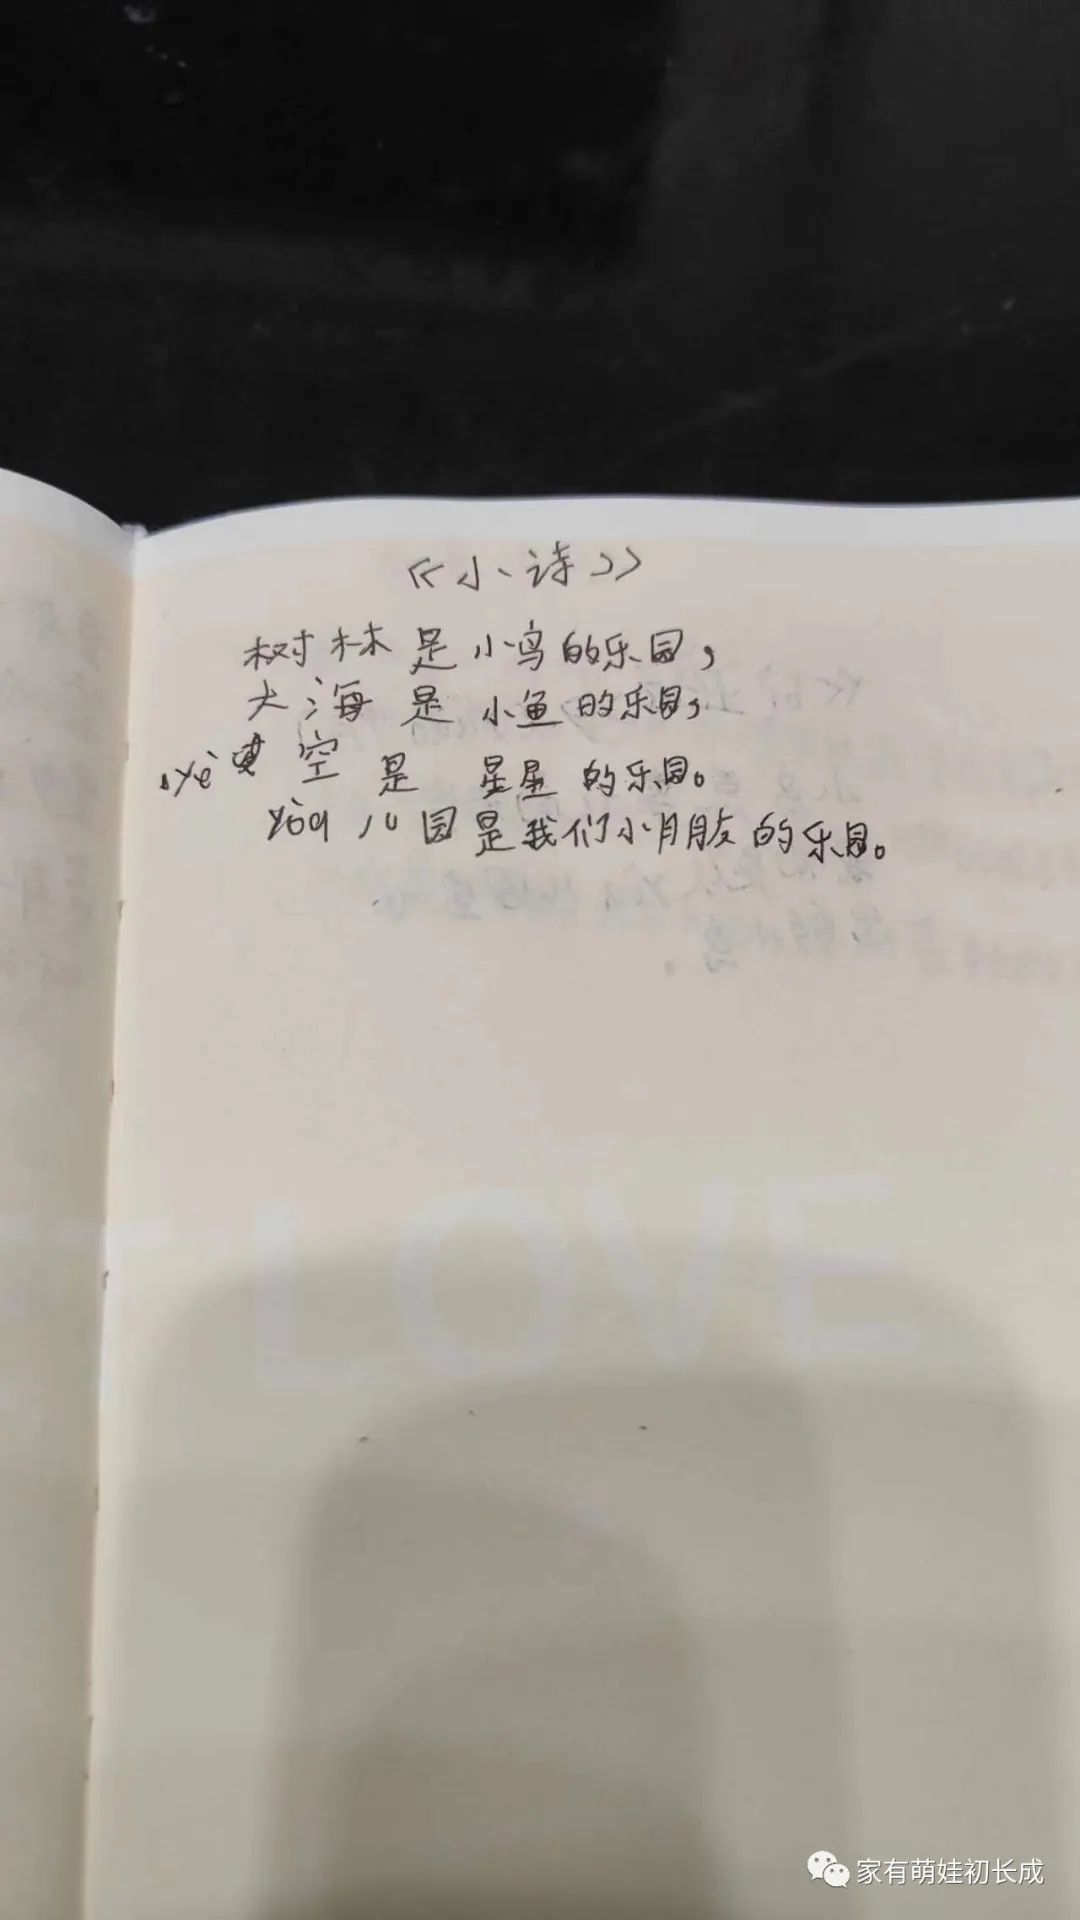 《小诗》
树林是小鸟的乐园，
大海是小鱼的乐园，
yè空是星星的乐园。
yòu儿园是我们小朋友的乐园。
LOVE
家有萌娃初长成